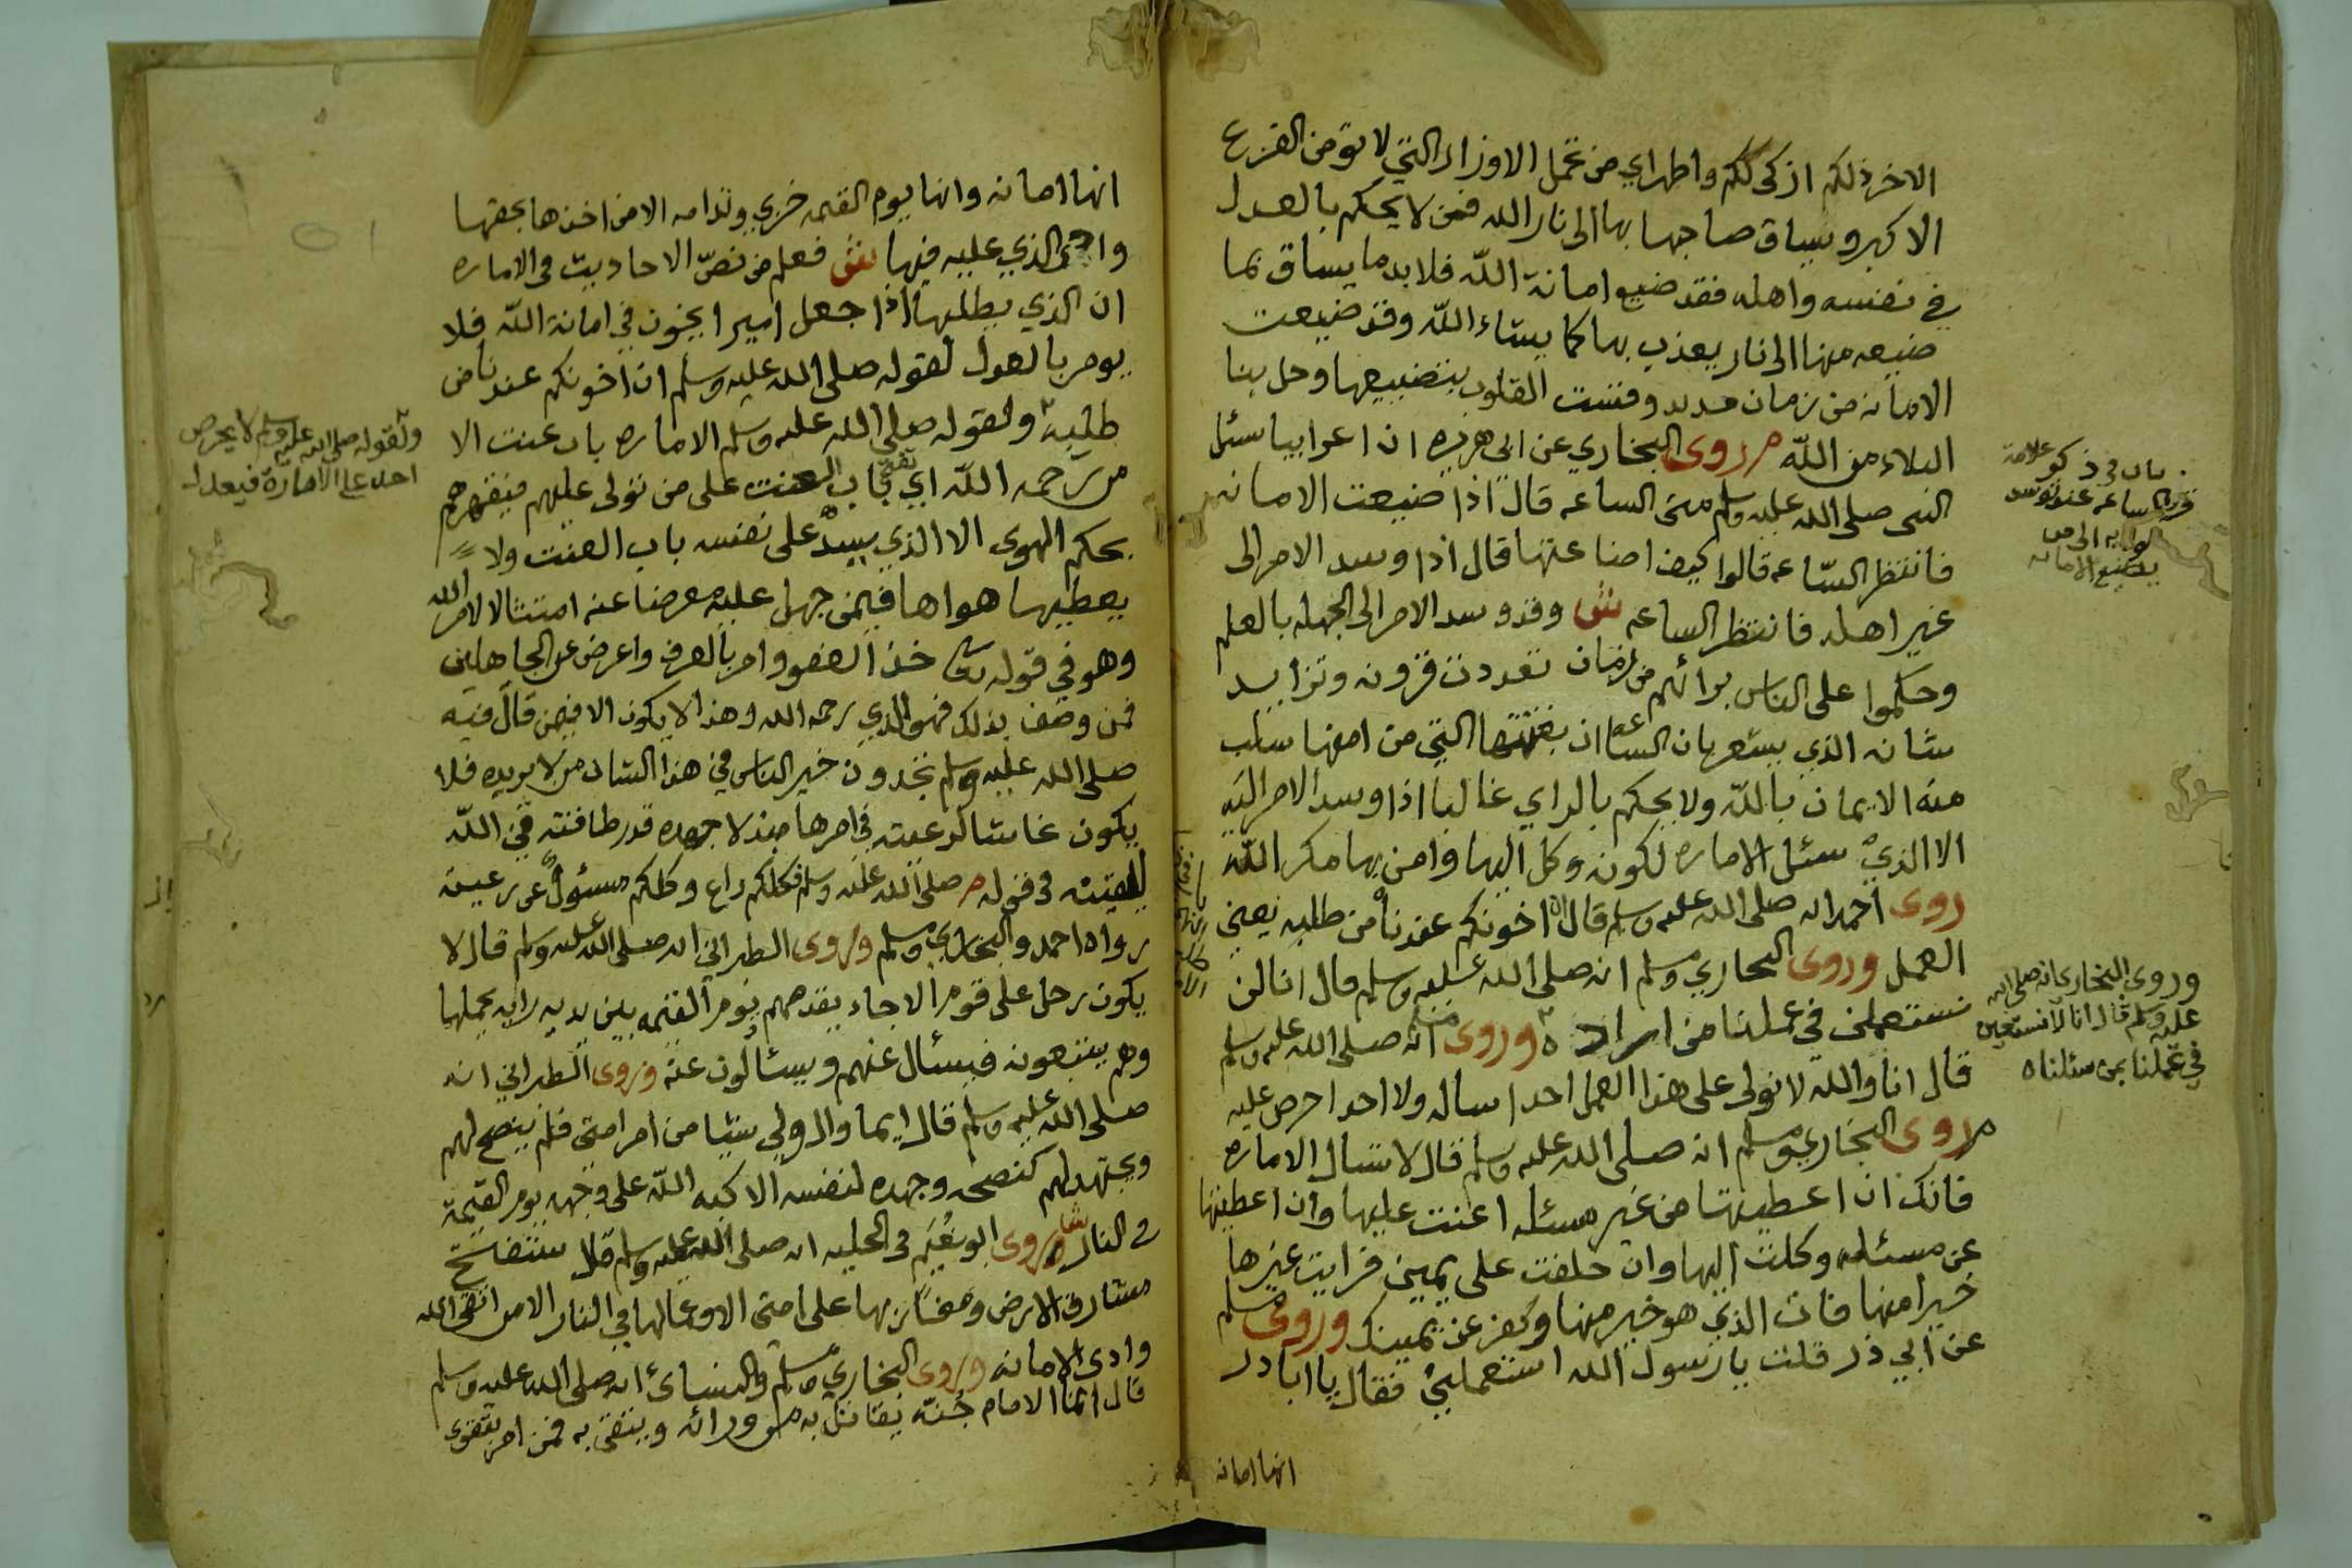 الاخرة ذلكم ازكى لكم واطهر اي من تحمل الاوزار التي لا تؤمن الفزع
الاكبر ويساق صاحبها بها الى نار الله فمن لا يحكم بالعدل
في نفسه واهله فقد ضيع امانة الله فلا بد ما يساق بما
ضيعه منها الى نار يعذب بها كما يشاء الله وقد ضيعت
الامانه من زمان مديد وفتنت القلوب بتضييعها وحل بنا
البلاء من الله م روى البخاري عن ابي هريره ان اعرابيا سئل
النبى صلى الله عليه وسلم متى الساعه قال اذا ضيعت الامانه
فانتظر الساعه قالوا كيف اضاعتها قال اذا وسد الامر الى
غير اهله فانتظر الساعه ش وقد وسد الامر الى الجهله بالعلم
وحكموا على الناس برائهم من ازمان تعددت قرونه وتزايد
شانه الذي يشعر بان الساعة ان بغتتها التي من امنها سلب
منه الايمان بالله ولا يحكم بالراي غالبا اذا وسد الامر اليه
الا الذي سئل الاماره لكونه وكل اليها وامن بها مكر الله
روى احمد انه صلى الله عليه وسلم قال ان اخونكم عندنا من طلبه يعني
العمل وروى البخاري ومسلم انه صلى الله عليه وسلم قال انا لن
نستعمل في عملنا من اراده وروى مسلم انه صلى الله عليه وسلم
قال انا والله لا نولى على هذا العمل احدا ساله ولا احدا حرص عليه
م روى البخاري ومسلم انه صلى الله عليه وسلم قال لا تسال الاماره
فانك ان اعطيتها من غير مسئله اعنت عليها وان اعطيتها
عن مسئله وكلت اليها وان حلفت على يمين فرايت غيرها
خيرا منها فات الذي هو خير منها وكفر عن يمينك وروى مسلم
عن ابي ذر قلت يا رسول الله استعملني فقال يا ابا ذر
انها امانه
باب في ذكر علامة
قرب الساعة عند توسد
يضيع الامانه
وروى البخاري انه صلى الله
عليه وسلم قال انا لا نستعين
في عملنا بمن سئلناه
انها امانه وانها يوم القيمه خزي وندامه الا من اخذها بحقها
وادى الذي عليه فيها ش فعلم من نص الاحاديث في الاماره
ان الذي يطلبها اذا جعل اميرا يخون في امانة الله فلا
يومر بالعدل لقوله صلى الله عليه وسلم ان اخونكم عندنا من
طلبه ولقوله صلى الله عليه وسلم الاماره باب عنت الا
من رحمه الله اي باب العنت على من تولى عليهم فيقهرهم
بحكم الهوى الا الذي يسد على نفسه باب العنت ولا
يعطيها هواها فيمن جهل عليه معرضا عنه امتثالا لامر الله
وهو في قوله تعالى خذ العفو وامر بالعرف واعرض عن الجاهلين
فمن وصف بذلك فهو الذي رحمه الله وهذا لا يكون الا فيمن قال فيه
صلى الله عليه وسلم تجدون خير الناس في هذا الشان من لا يريده فلا
يكون غاشا لرعيته في امرها جهده قدر طاقته في الله
في قوله م صلى الله عليه وسلم فكلكم راع وكلكم مسئول عن رعيته
رواه احمد والبخاري ومسلم وروى الطبراني انه صلى الله عليه وسلم قال لا
يكون رجل على قوم الا جاء يقدمهم يوم القيمه بين يديه رايه يحملها
وهم يتبعونه فيسئال عنهم ويسئالون عنه وروى الطبراني انه
صلى الله عليه وسلم قال ايما وال ولي شيئا من امر امتي فلم ينصح لهم
ويجتهد لهم كنصحه وجهده لنفسه الا كبه الله على وجهه يوم القيمة
في النار وروى ابو نعيم في الحليه انه صلى الله عليه وسلم قال ستفتح
مشارق الارض ومغاربها على امتى الا وعمالها في النار الا من اتقى الله
وادى الامانه وروى البخاري ومسلم والنسائ انه صلى الله عليه وسلم
قال انما الامام جنة يقاتل به من ورائه ويتقى به فمن امر بتقوى
ولقوله صلى الله عليه وسلم لا يحرص
احد على الامارة فيعدل